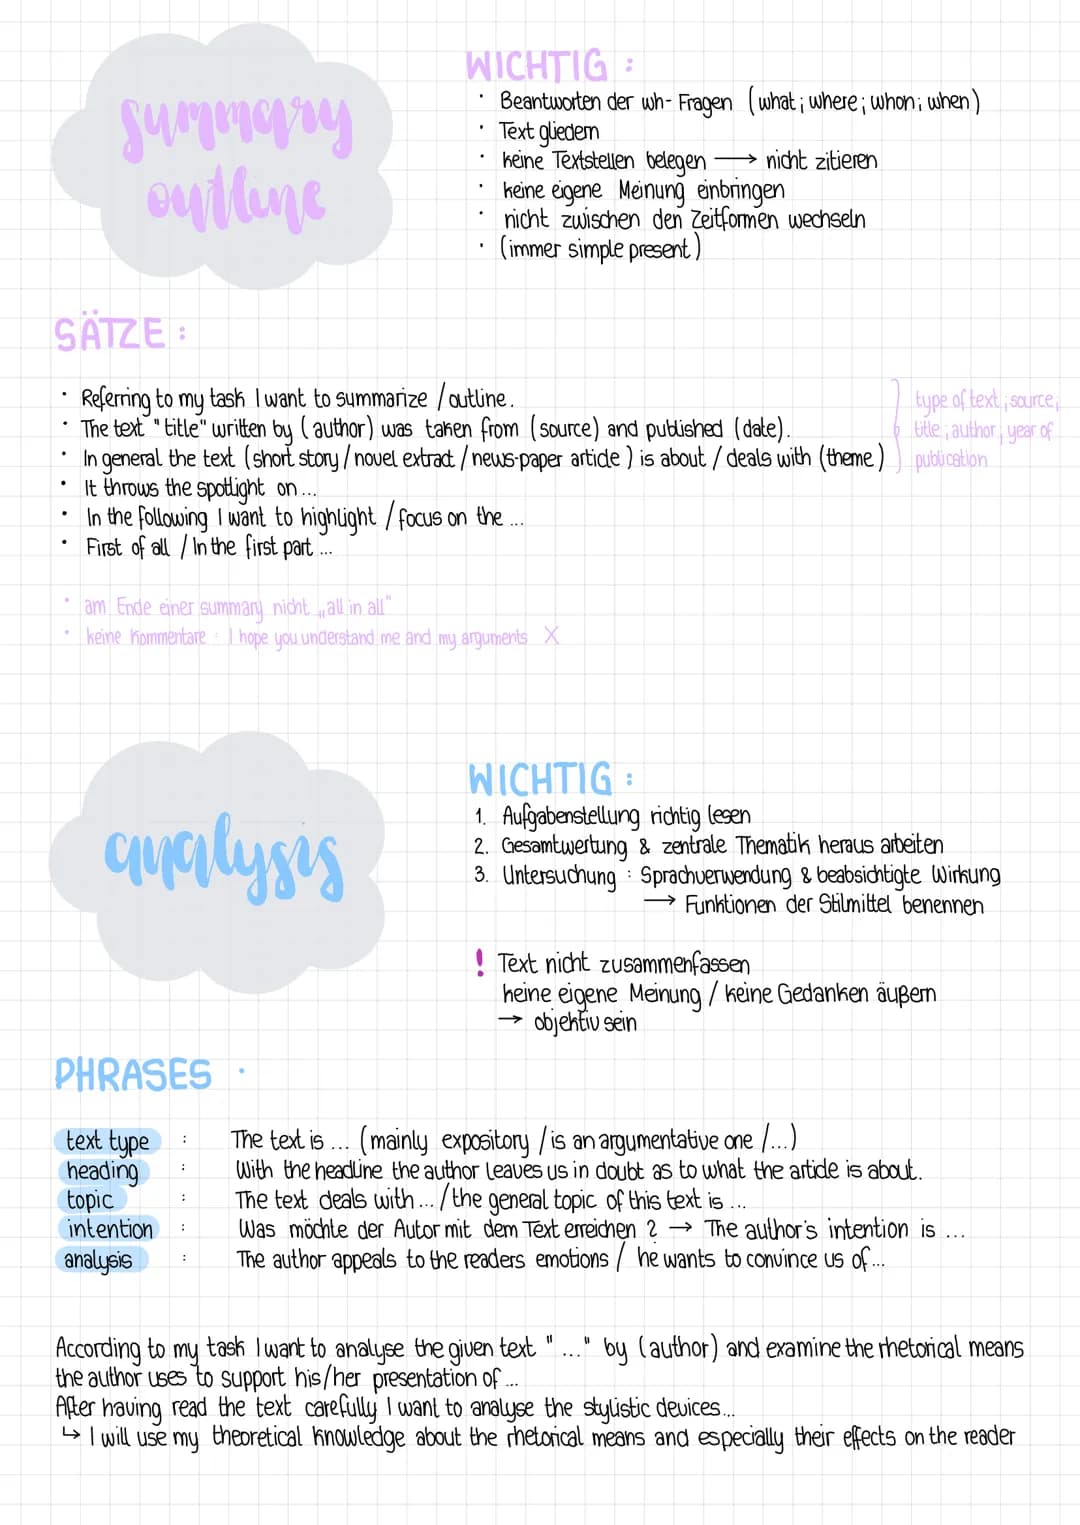 summary
outline
WICHTIG :
· Beantworten der wh-Fragen (what ; where ; whon ; when)
· Text gliedern
· keine Textstellen belegen → nicht zitieren
· keine eigene Meinung einbringen
· nicht zwischen den Zeitformen wechseln
· (immer simple present)
SÄTZE :
· Referring to my task I want to summarize / outline.
· The text "title" written by (author) was taken from (source) and published (date).
· In general the text (short story / novel extract / news-paper article) is about / deals with (theme)
type of text ; source ;
title ; author ; year of
publication
· It throws the spotlight on ...
· In the following I want to highlight / focus on the ...
· First of all / In the first part ...
· am Ende einer summary nicht „all in all"
· keine Kommentare : I hope you understand me and my arguments X
analysis
WICHTIG :
1. Aufgabenstellung richtig lesen
2. Gesamtwertung & zentrale Thematik heraus arbeiten
3. Untersuchung : Sprachverwendung & beabsichtigte Wirkung
→ Funktionen der Stilmittel benennen
! Text nicht zusammenfassen
keine eigene Meinung / keine Gedanken äußern
→ objektiv sein
PHRASES ·
text type : The text is ... (mainly expository / is an argumentative one /...)
heading : With the headline the author leaves us in doubt as to what the article is about.
topic : The text deals with ... / the general topic of this text is ...
intention : Was möchte der Autor mit dem Text erreichen ? → The author's intention is ...
analysis : The author appeals to the readers emotions / he wants to convince us of ...
According to my task I want to analyse the given text "..." by (author) and examine the rhetorical means
the author uses to support his/her presentation of ...
After having read the text carefully I want to analyse the stylistic devices...
↳ I will use my theoretical knowledge about the rhetorical means and especially their effects on the reader